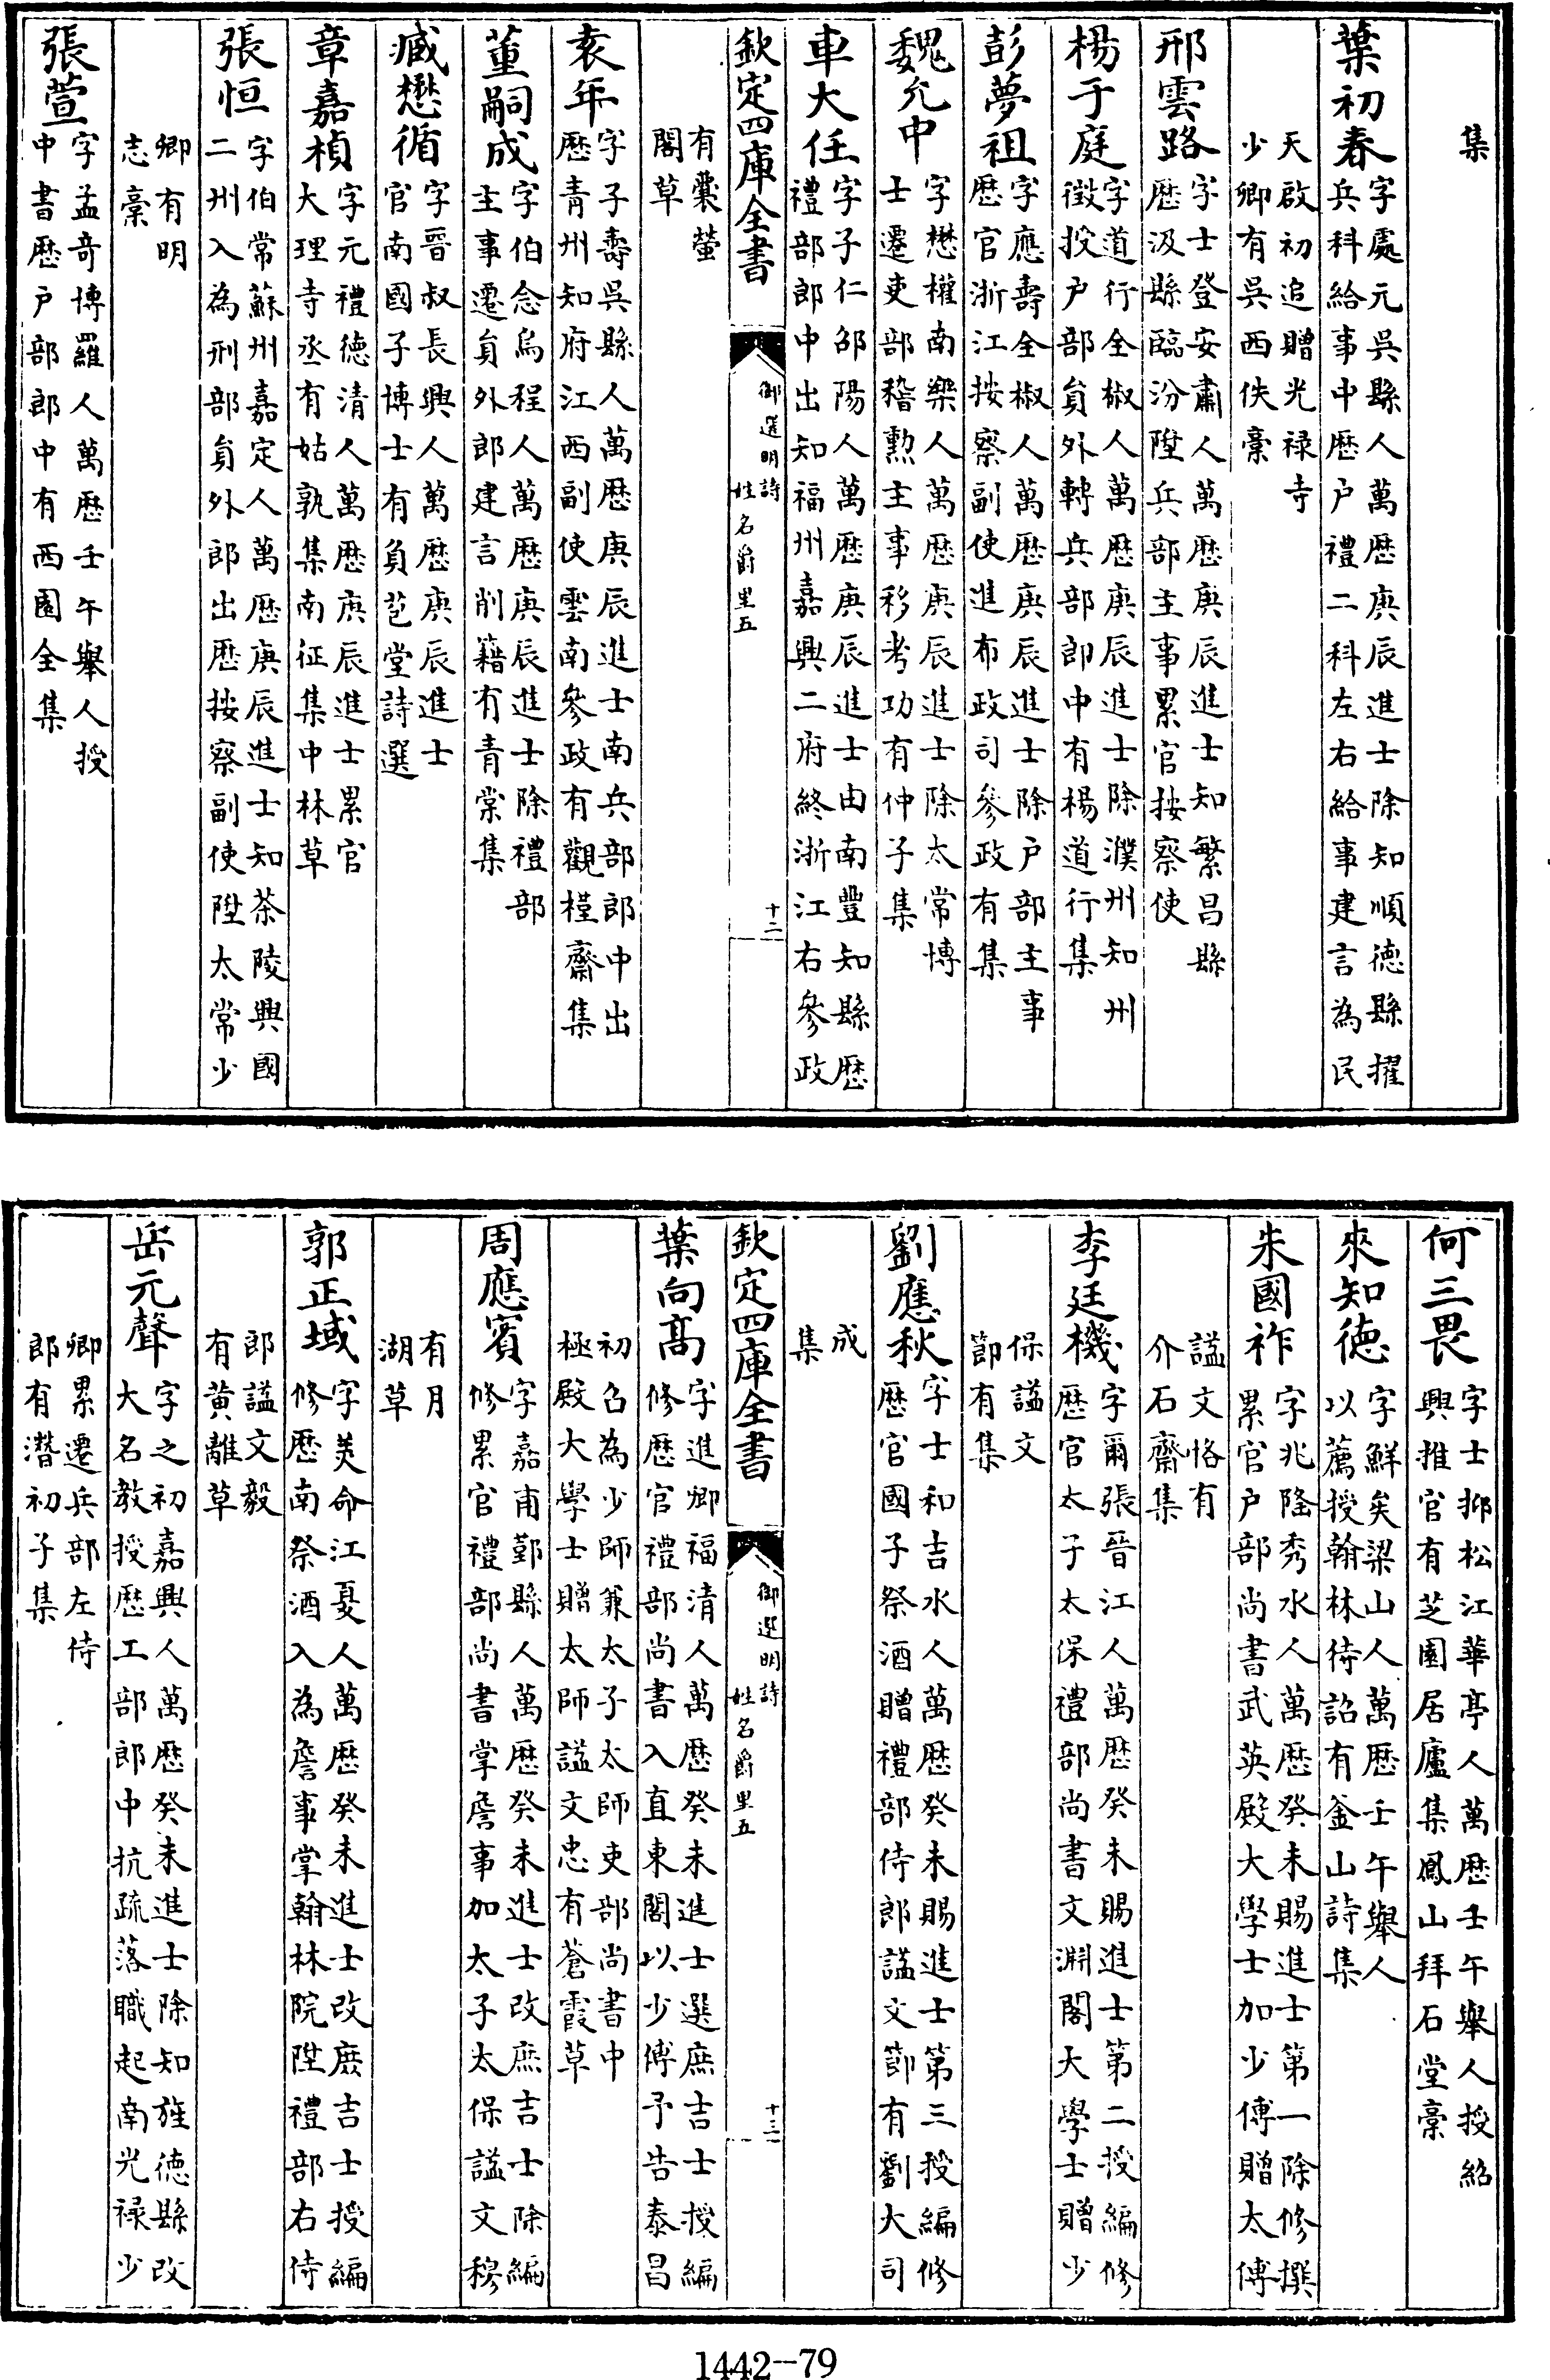 集
葉初春字處元吳縣人萬歷庚辰進士除知順德縣擢
兵科給事中歷户禮二科左右給事建言為民
天啟初追贈光祿寺
少卿有吳西佚稾
邢雲路字士登安肅人萬歷庚辰進士知繁昌縣
歷汲縣臨汾陞兵部主事累官按察使
楊于庭字道行全椒人萬歷庚辰進士除濮州知州
徵授户部員外轉兵部郎中有楊道行集
彭夢祖字應壽全椒人萬歷庚辰進士除户部主事
歷官浙江按察副使進布政司參政有集
魏允中字懋權南樂人萬歷庚辰進士除太常博
士遷吏部稽勲主事移考功有仲子集
車大任字子仁邵陽人萬歷庚辰進士由南豐知縣歷
禮部郎中出知福州嘉興二府終浙江右參政
欽定四庫全書
御選明詩
姓名爵里五
十二
有囊螢
閣草
袁年字子壽吳縣人萬歷庚辰進士南兵部郎中出
歷青州知府江西副使雲南參政有觀槿齋集
董嗣成字伯念烏程人萬歷庚辰進士除禮部
主事遷員外郎建言削籍有青棠集
臧懋循字晉叔長興人萬歷庚辰進士
官南國子博士有負苞堂詩選
章嘉楨字元禮德清人萬歷庚辰進士累官
大理寺丞有姑孰集南征集中林草
張恒字伯常蘇州嘉定人萬歷庚辰進士知茶陵興國
二州入為刑部員外郎出歷按察副使陞太常少
卿有明
志稾
張萱字孟奇博羅人萬歷壬午舉人授
中書歷户部郎中有西園全集
何三畏字士抑松江華亭人萬歷壬午舉人授紹
興推官有芝園居廬集鳳山拜石堂稾
來知德字鮮矣梁山人萬歷壬午舉人
以薦授翰林待詔有釜山詩集
朱國祚字兆隆秀水人萬歷癸未賜進士第一除修撰
累官户部尚書武英殿大學士加少傅贈太傅
諡文恪有
介石齋集
李廷機字爾張晉江人萬歷癸未賜進士第二授編修
歷官太子太保禮部尚書文淵閣大學士贈少
保諡文
節有集
劉應秋字士和吉水人萬歷癸未賜進士第三授編修
歷官國子祭酒贈禮部侍郎諡文節有劉大司
成
集
欽定四庫全書
御選明詩
姓名爵里五
十三
葉向高字進卿福清人萬歷癸未進士選庶吉士授編
修歷官禮部尚書入直東閣以少傅予告泰昌
初召為少師兼太子太師吏部尚書中
極殿大學士贈太師諡文忠有蒼霞草
周應賓字嘉甫鄞縣人萬歷癸未進士改庶吉士除編
修累官禮部尚書掌詹事加太子太保諡文穆
有月
湖草
郭正域字美命江夏人萬歷癸未進士改庶吉士授編
修歷南祭酒入為詹事掌翰林院陞禮部右侍
郎諡文毅
有黄離草
岳元聲字之初嘉興人萬歷癸未進士除知旌德縣改
大名教授歷工部郎中抗疏落職起南光祿少
卿累遷兵部左侍
郎有潛初子集
1442—79